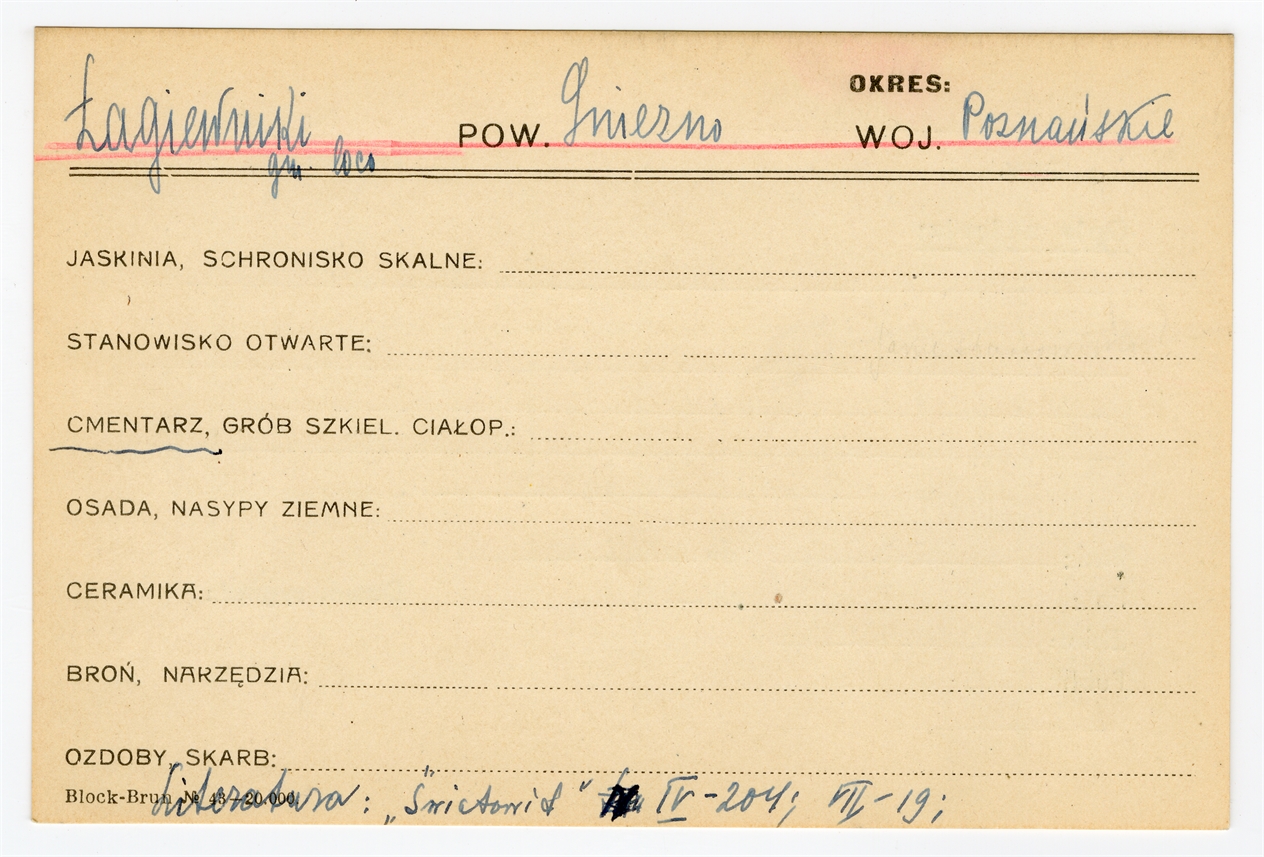 OKRES:
Łagiewniki POW. Gniezno WOJ. Poznańskie
gm. loco
JASKINIA, SCHRONISKO SKALNE:
STANOWISKO OTWARTE:
CMENTARZ, GRÓB SZKIEL. CIAŁOP.:
OSADA, NASYPY ZIEMNE:
CERAMIKA:
BROŃ, NARZĘDZIA:
OZDOBY, SKARB:
Literatura: „Światowit" IV-204; VII-19;
Block-Brun № 43—20.000.